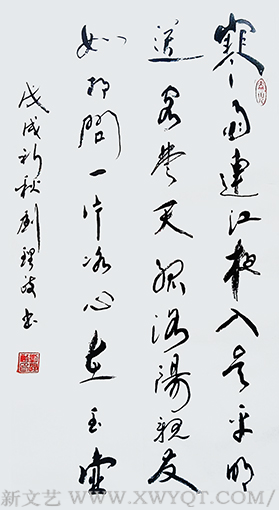 寒雨連江夜入吴平明
送客楚天孤洛陽親友
如相問一片冰心在玉壶
戊戌秋劉書
新文艺 WWW.XWYQT.COM/